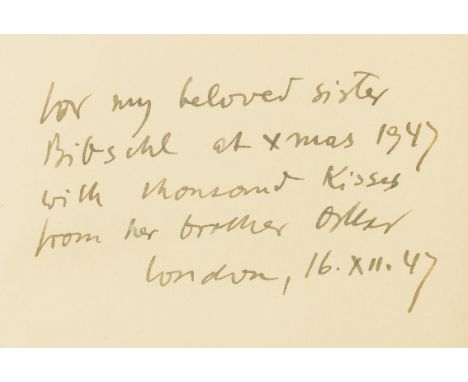 for my beloved sister
Bibschl at xmas 1947
with thousand Kisses
from her brother Oskar
London, 16. XII. 47